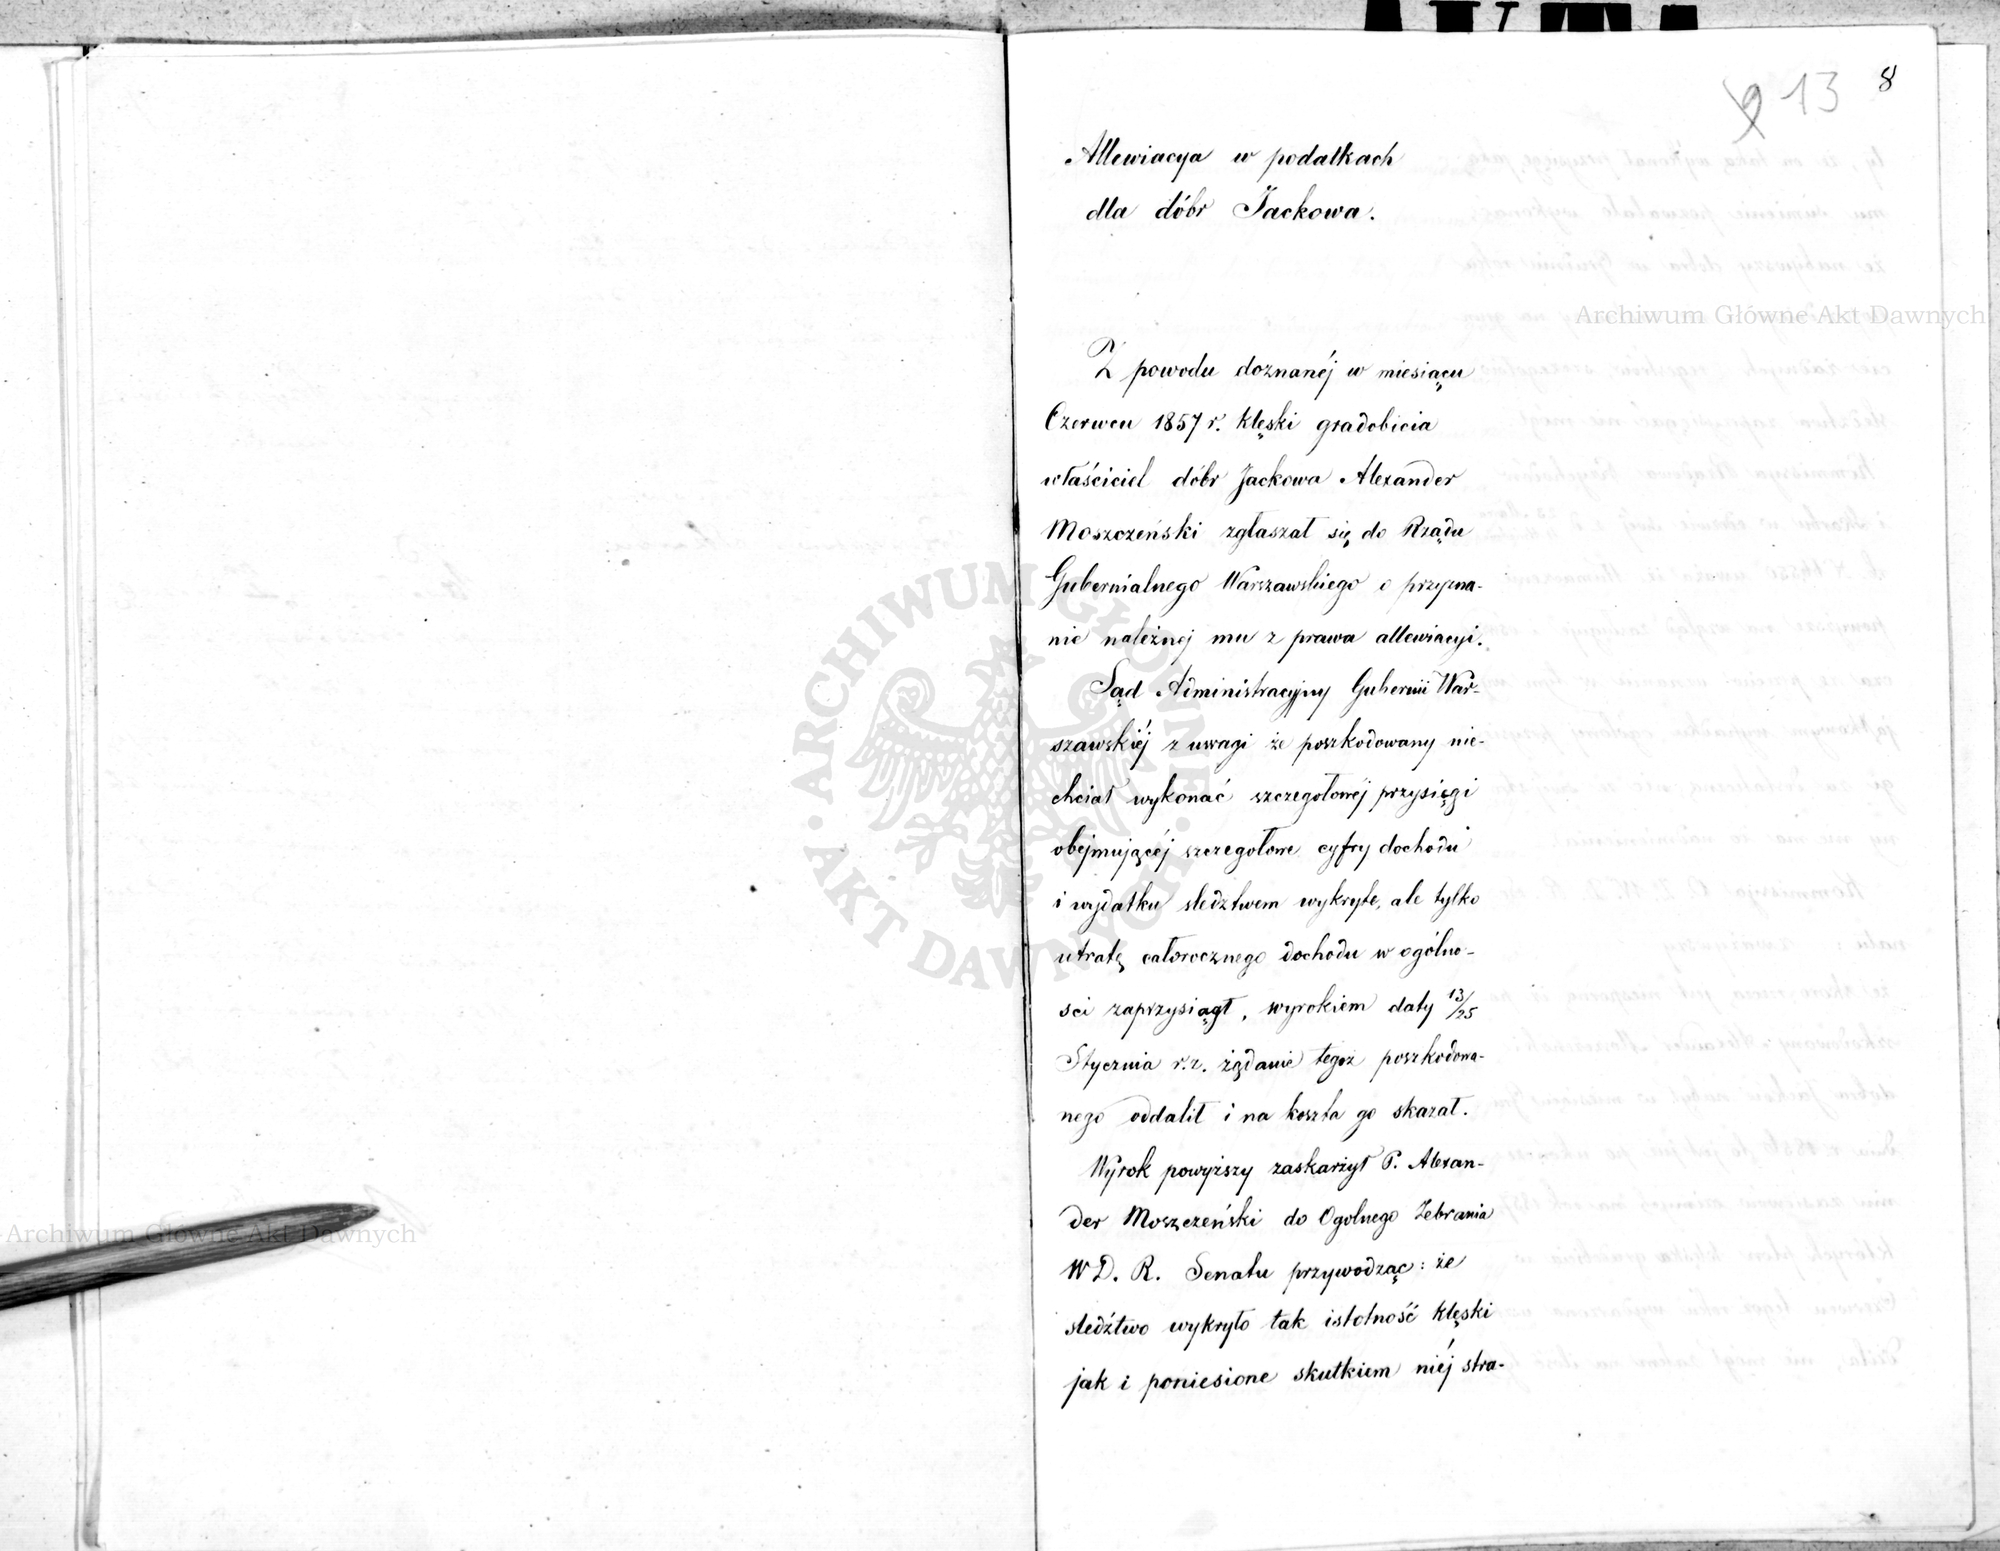 9 13 8
Allewiacya w podatkach
dla dóbr Jackowa.
Archiwum Główne Akt Dawnych
Z powodu doznanéj w miesiącu
Czerwcu 1857 r. klęski gradobicia
właściciel dóbr Jackowa Alexander
Moszczeński zgłaszał się do Rządu
Gubernialnego Warszawskiego o przyzna-
nie należnej mu z prawa allewiacyi.
Sąd Administracyjny Gubernii War-
szawskiéj z uwagi że poszkodowany nie-
chciał wykonać szczegołowéj przysięgi
obejmującéj szczegołowe cyfry dochodu
i wydatku sledztwem wykryte, ale tylko
utratę całorocznego dochodu w ogólno-
sci zaprzysiągł, wyrokiem daty 13/25
Stycznia r.z. żądanie tegoż poszkodowa-
nego oddalił i na koszta go skazał.
Wyrok powyższy zaskarżył P. Alexan-
der Moszczeński do Ogolnego Zebrania
W D. R. Senatu przywodząc: że
sledźtwo wykryło tak istotność klęski
jak i poniesione skutkiem niéj stra-
ARCHIWUM GŁÓWNE
· AKT DAWNYCH ·
Archiwum Główne Akt Dawnych